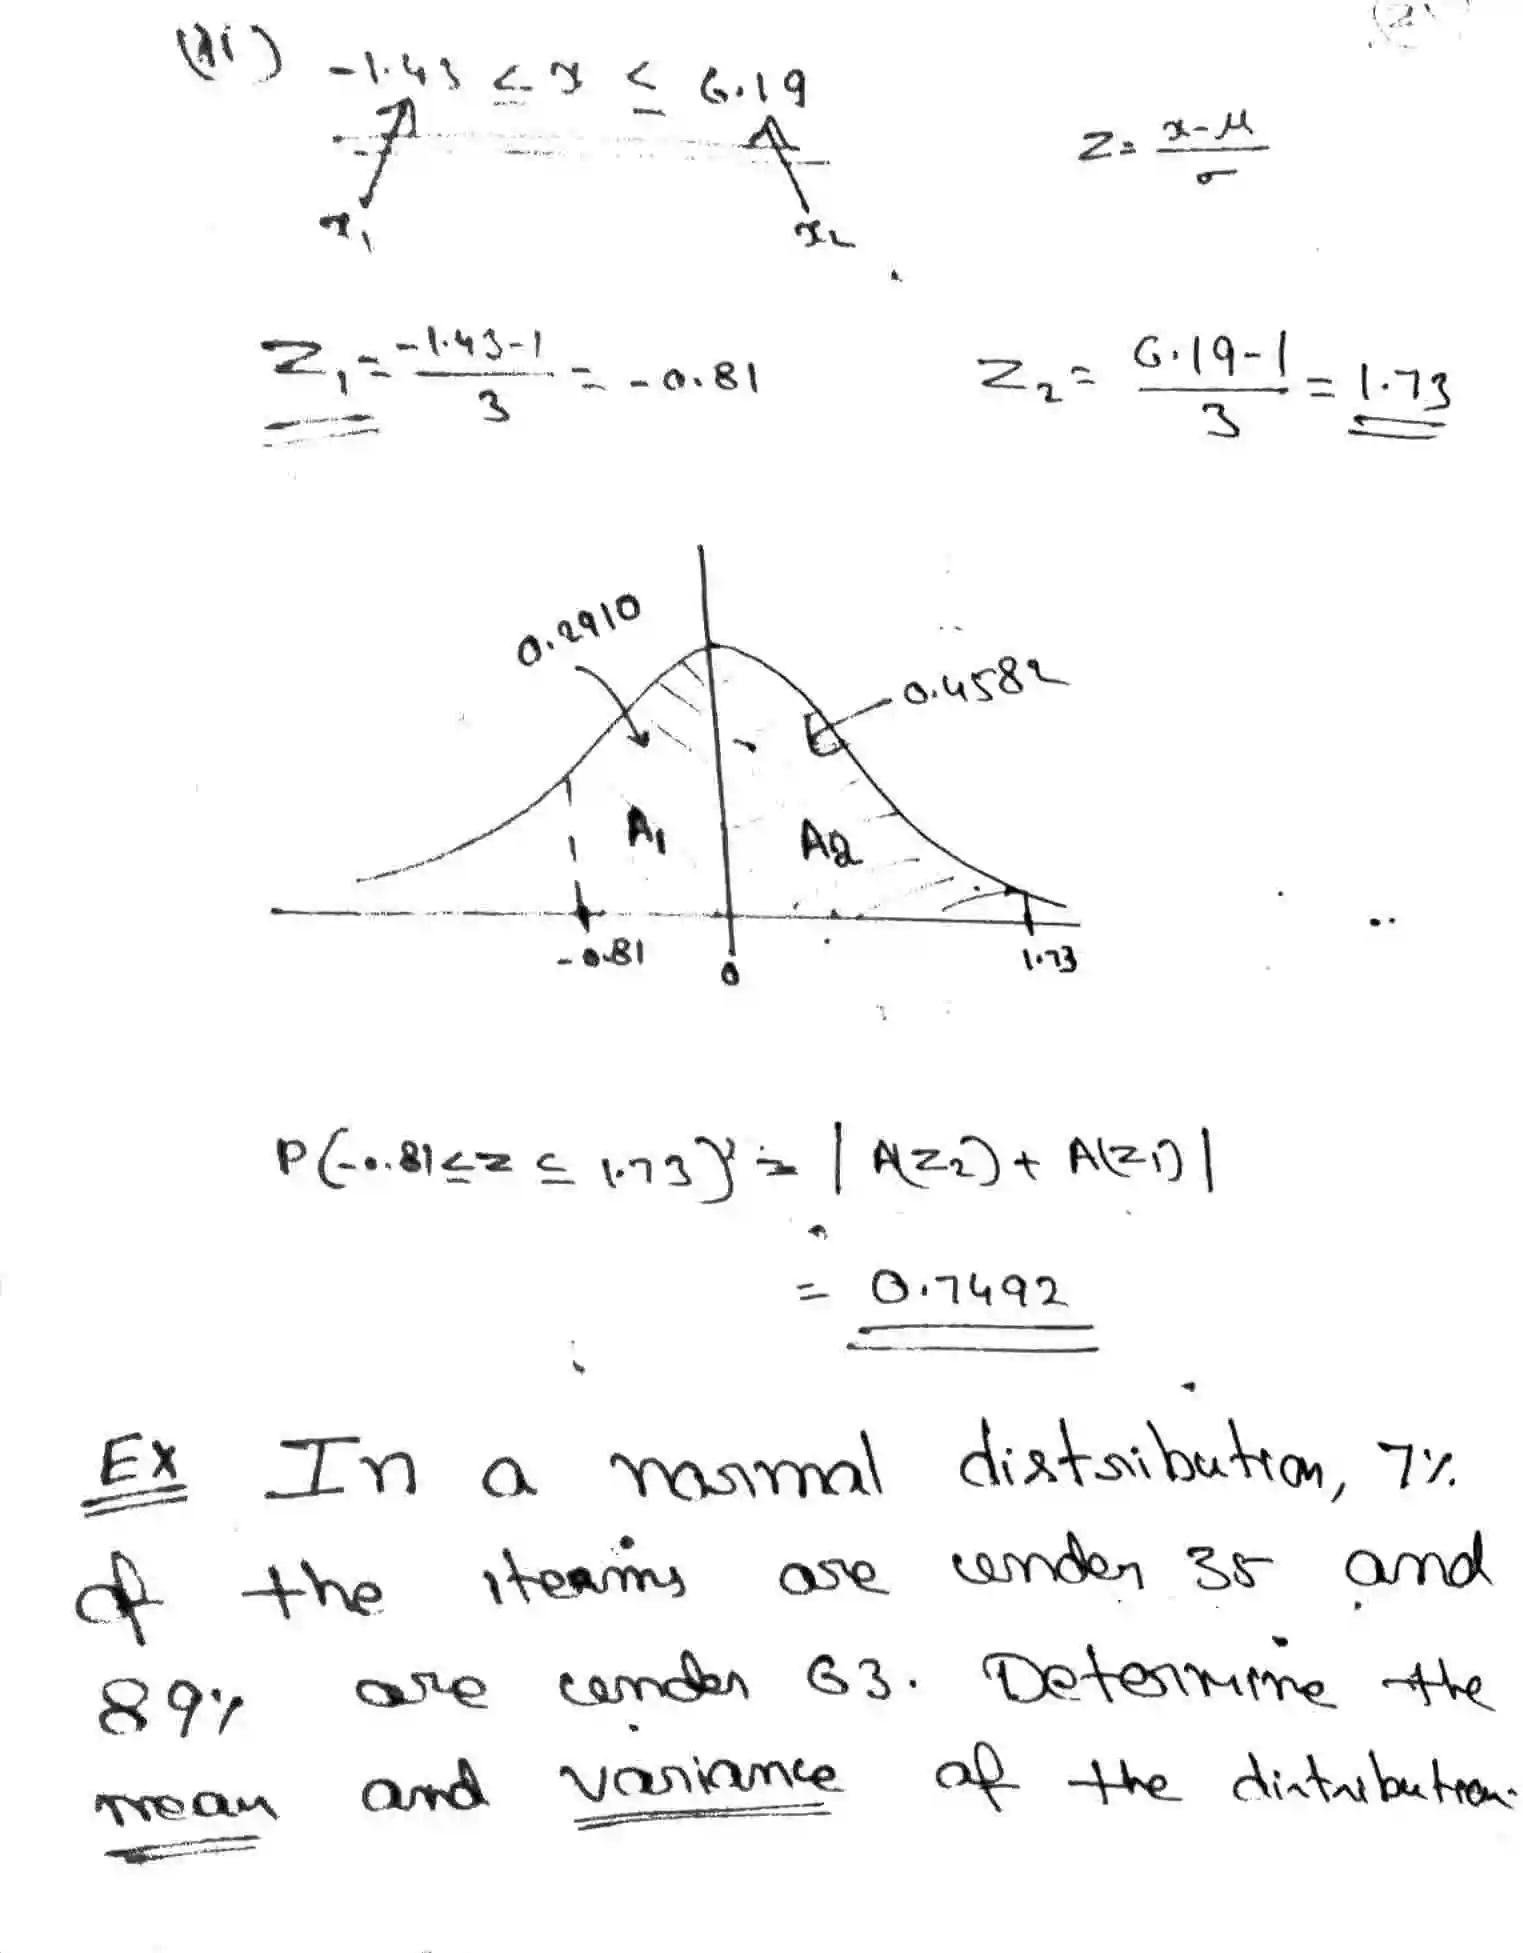 (2)
(ii) -1.43 ≤ x ≤ 6.19
Z = x-μ / σ
x₁ x₂
Z₁ = -1.43-1 / 3 = -0.81
Z₂ = 6.19-1 / 3 = 1.73
0.2910
0.4582
A₁ A2
-0.81 0 1.73
P(-0.81 ≤ z ≤ 1.73) = | A(Z₂) + A(Z₁) |
= 0.7492
Ex In a normal distribution, 7%
of the items are under 35 and
89% are under 63. Determine the
mean and variance of the distribution.